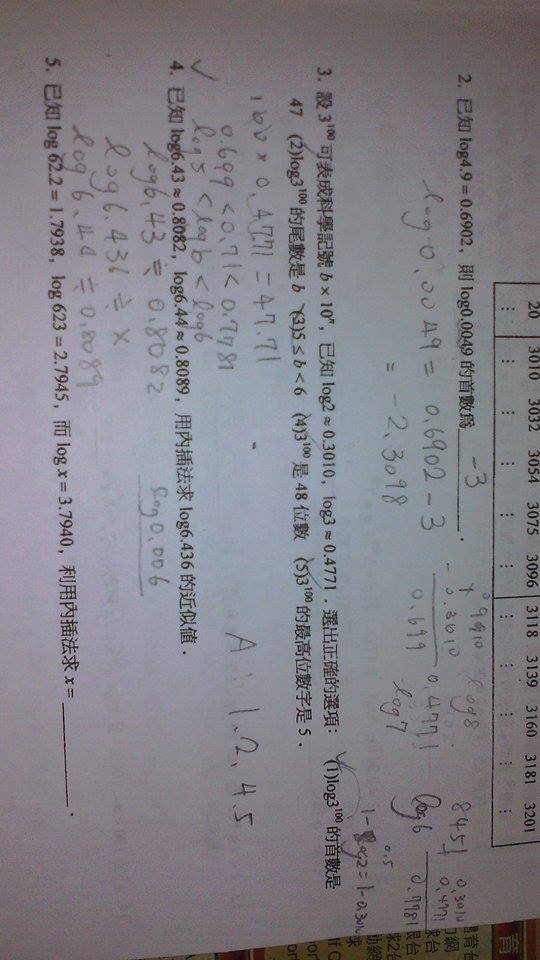 20 3010 3032 3054 3075 3096 3118 3139 3160 3181 3201
⋮ ⋮ ⋮ ⋮ ⋮ ⋮ ⋮ ⋮ ⋮ ⋮
2. 已知 log4.9 = 0.6902，則 log0.0049 的首數為 -3 .
log 0.0049 = 0.6902 - 3
= -2.3098
- 0.3010
0.699
0.4771
log7
log8
8451
log6
0.3010
+ 0.4771
0.7781
3. 設 3^100 可表成科學記號 b × 10^n，已知 log2 ≈ 0.3010，log3 ≈ 0.4771．選出正確的選項： (1)log3^100 的首數是
47 (2)log3^100 的尾數是 b (3)5 ≤ b < 6 (4)3^100 是 48 位數 (5)3^100 的最高位數字是 5．
100 × 0.4771 = 47.71
0.699 < 0.71 < 0.7781
log5 < log b < log6
A : 1.2.4.5
1 - log2 = 1 - 0.3010
0.5
4. 已知 log6.43 ≈ 0.8082，log6.44 ≈ 0.8089，用內插法求 log6.436 的近似值．
log6.43 ≒ 0.8082
log 6.436 ≒ x
log 6.44 ≒ 0.8089
log 0.006
5. 已知 log 62.2 = 1.7938，log 623 = 2.7945，而 log x = 3.7940，利用內插法求 x = ．